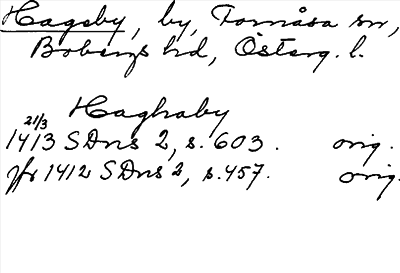 Hagsby, by, Tornåsa sn,
Bobergs hd, Österg. l.
Haghaby
21/3
1413 SDns 2, s. 603. orig.
jfr 1412 SDns 2, s. 457. orig.